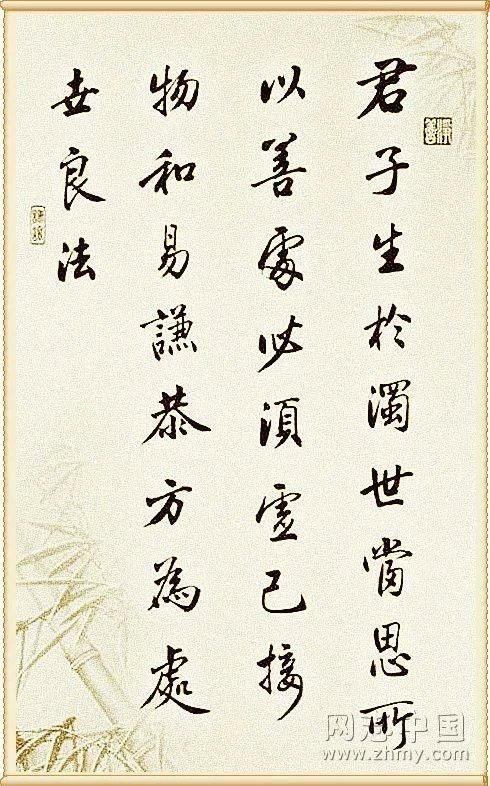 君子生於濁世當思所
以善處必須虛己接
物和易謙恭方為處
世良法
网总中国
www.zhmy.com